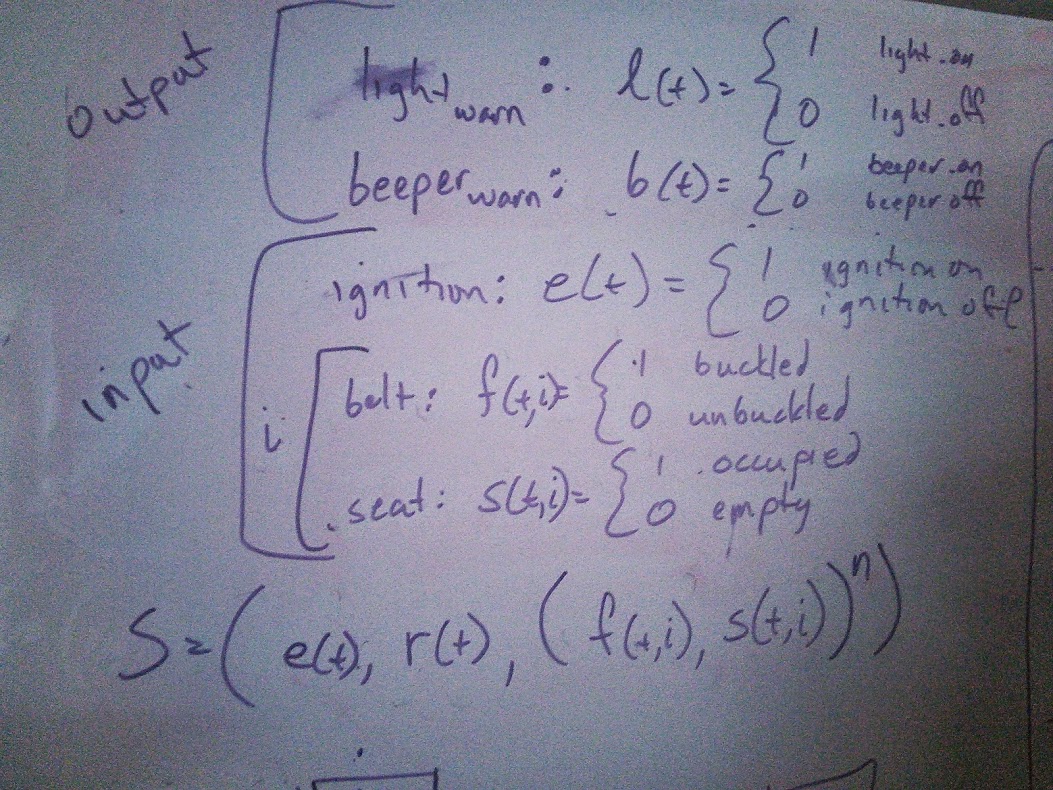 output
light warn : l(t) = { 1 light.on
0 light.off
beeper warn : b(t) = { 1 beeper.on
0 beeper off
input
ignition: e(t) = { 1 ignition on
0 ignition off
i
belt: f(t,i) = { 1 buckled
0 unbuckled
seat: s(t,i) = { 1 occupied
0 empty
S = ( e(t), r(t), ( f(t,i), s(t,i) )^n )